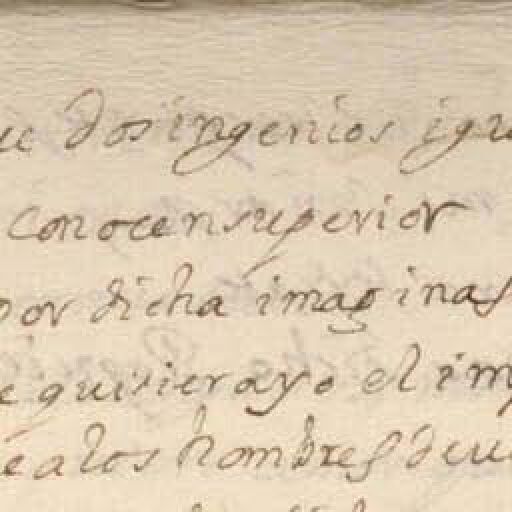 ue dos ingenios igua
conocen superior
por dicha imaginas
e quisiera yo el imp
e a los hombres deue